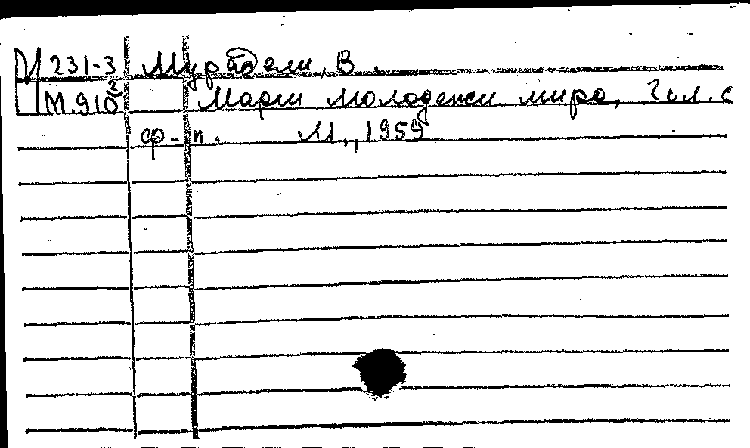 231-3 Мурадели, В.
М.910² Марш молодежи мира, Гол. с
ф-п. М., 1959